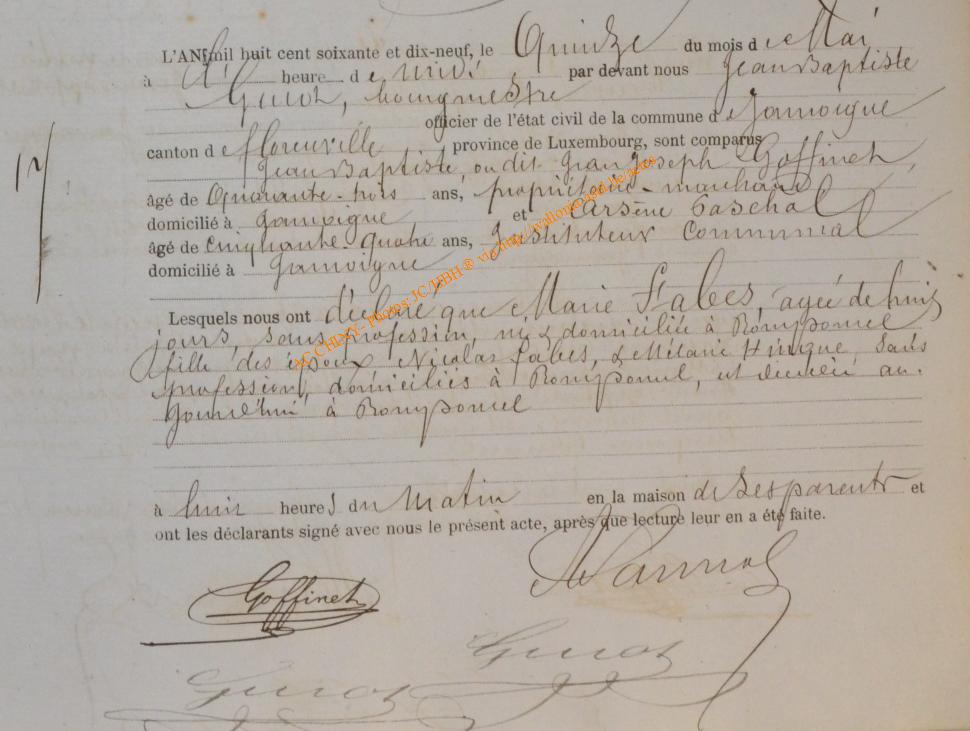 L'AN mil huit cent soixante et dix-neuf, le Quinze du mois de Mai
à heure de midi par devant nous Jean Baptiste
Guiot, bourgmestre
officier de l'état civil de la commune de Jamoigne
canton de florenville province de Luxembourg, sont comparus
Jean Baptiste, ou dit Jean Joseph Goffinet,
âgé de Quarante-trois ans, propriétaire-marchand
domicilié à Jamoigne et Arsène Paschal
âgé de Cinquante quatre ans, Instituteur Communal
domicilié à Jamoigne
Lesquels nous ont déclaré que Marie Fabes, agée de huit
jours, sans profession, née & domiciliée à Romponcel
fille des époux Nicolas Fabes, & Mélanie sans
profession, domiciliés à Romponcel, est décédée au-
jourd'hui à Romponcel
à huit heures du Matin en la maison de ses parents et
ont les déclarants signé avec nous le présent acte, après que lecture leur en a été faite.
Goffinet
Guiot
Guiot
17
AC CHINY - Photos JC/HBH ® via http://wallonica.gen.be/actes